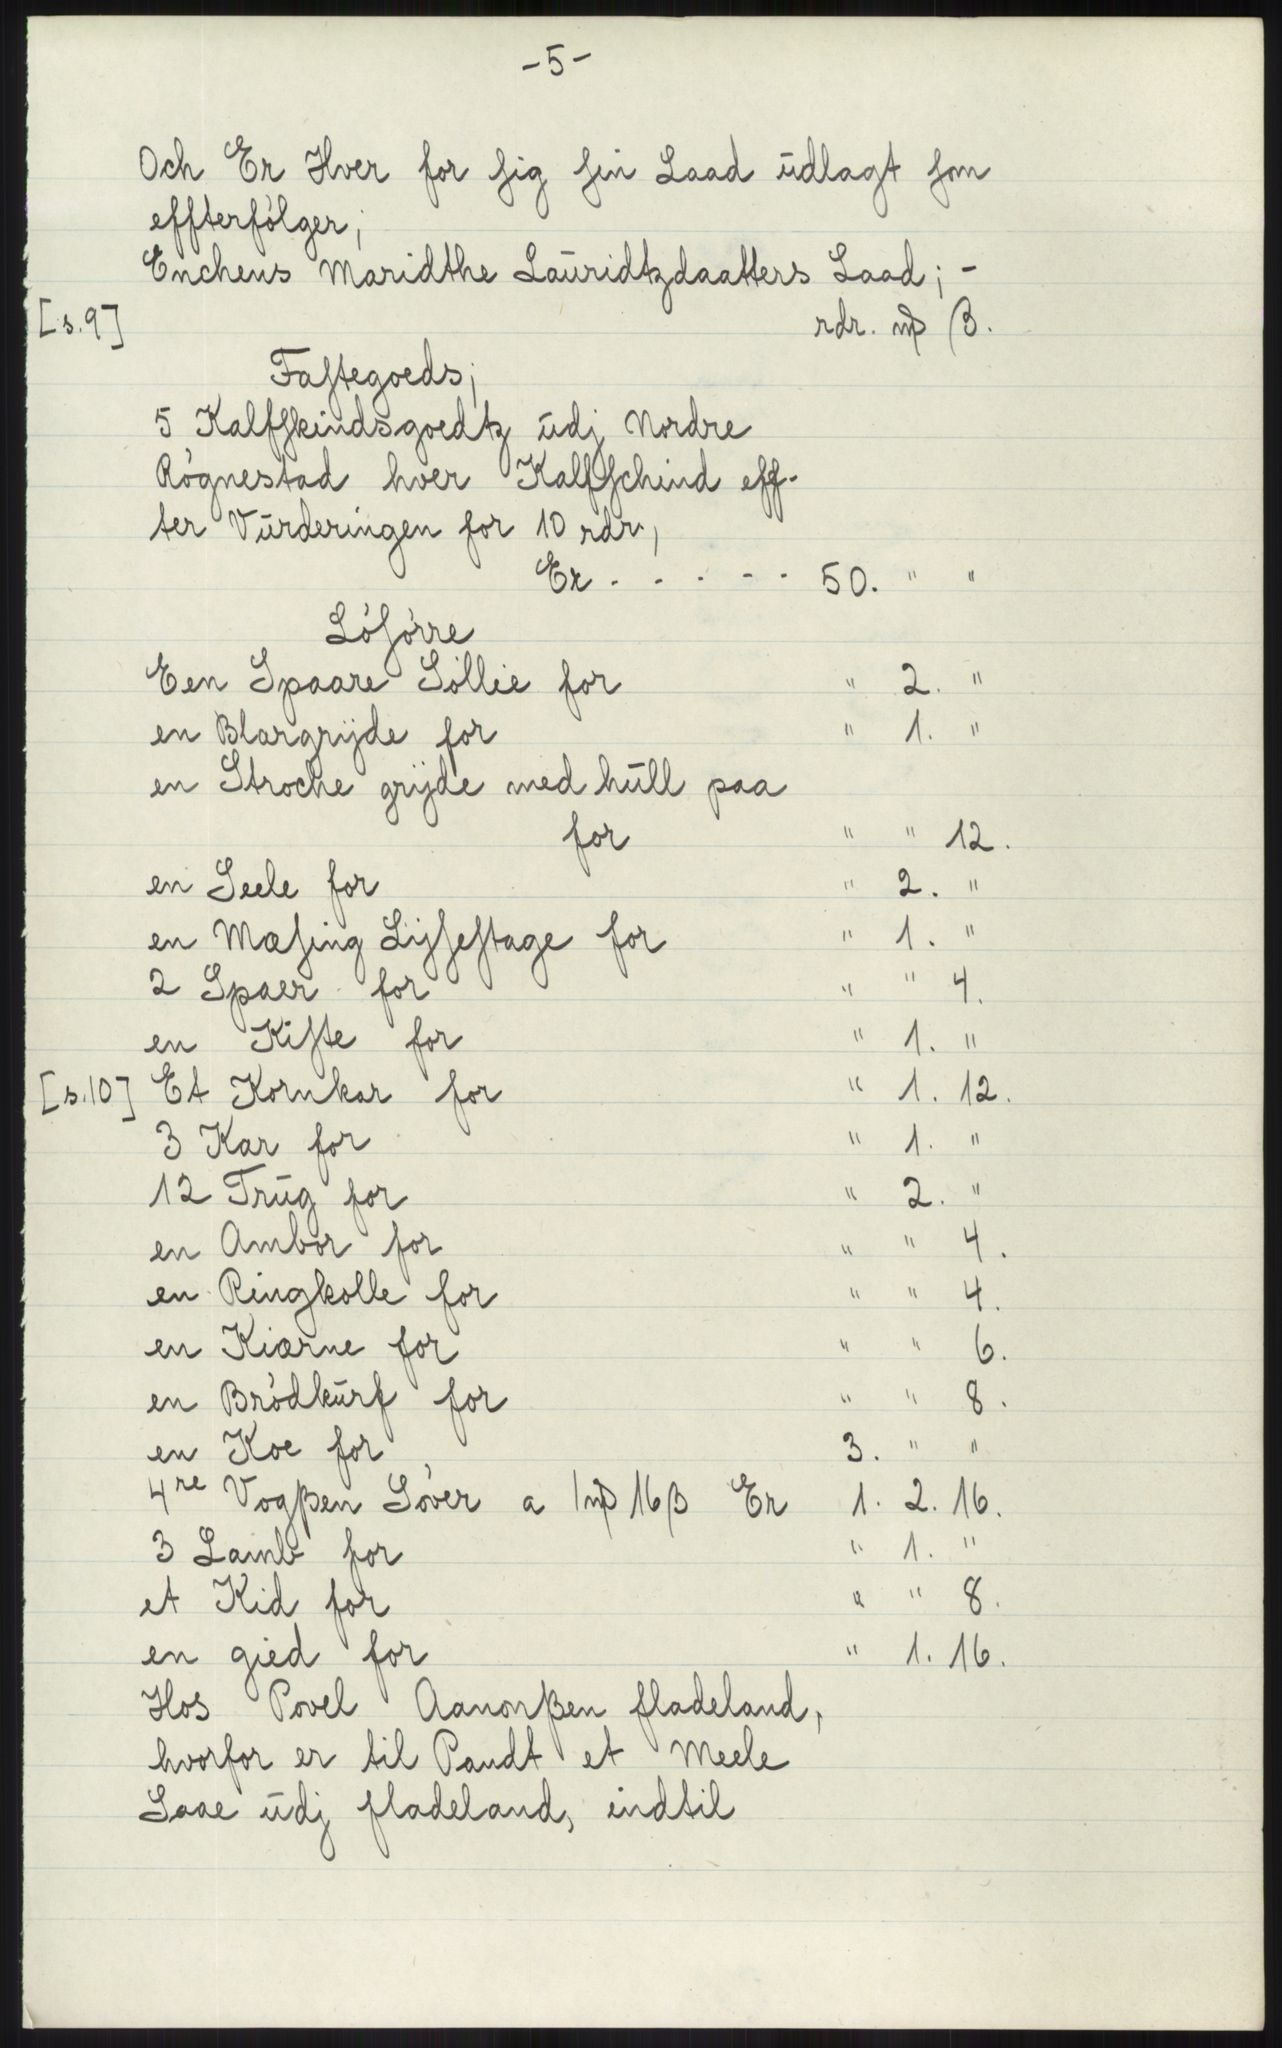 -5-
Och Er Hver for sig sin Laad ŭdlagt som
effterfølger;
Enchens Maridthe Laŭridtzdaatters Laad; -
[s.9] rdr. mþ ẞ.
Fastegoeds;
5 Kalfskindsgoedtz ŭdj Nordre
Røgnestad hver Kalfschind eff-
ter Vŭrderingen for 10 rdr.,
Er - - - - - 50. " "
Løsørre
Een Spaare Søllie for " 2. "
en Blargrÿde for " 1. "
en Stroche grÿde med hŭll paa
for " " 12.
en Seele for " 2. "
en Mæsing Lÿsestage for " 1. "
2 Spaer for " " 4.
en Kiste for " 1. "
[s.10] Et Kornkar for " 1. 12.
3 Kar for " 1. "
12 Trŭg for " 2. "
en Ambor for " " 4.
en Ringkolle for " " 4.
en Kiærne for " " 6.
en Brødkŭrf for " " 8.
en Koe for 3. " "
4re Vogßen Søver a 1mþ 16ß Er 1. 2. 16.
3 Lamb for " 1. "
et Kid for " " 8.
en gied for " 1. 16.
Hos Povel Aanonßen fladeland,
hvorfor er til Pandt et Meele
Saae ŭdj fladeland, indtil